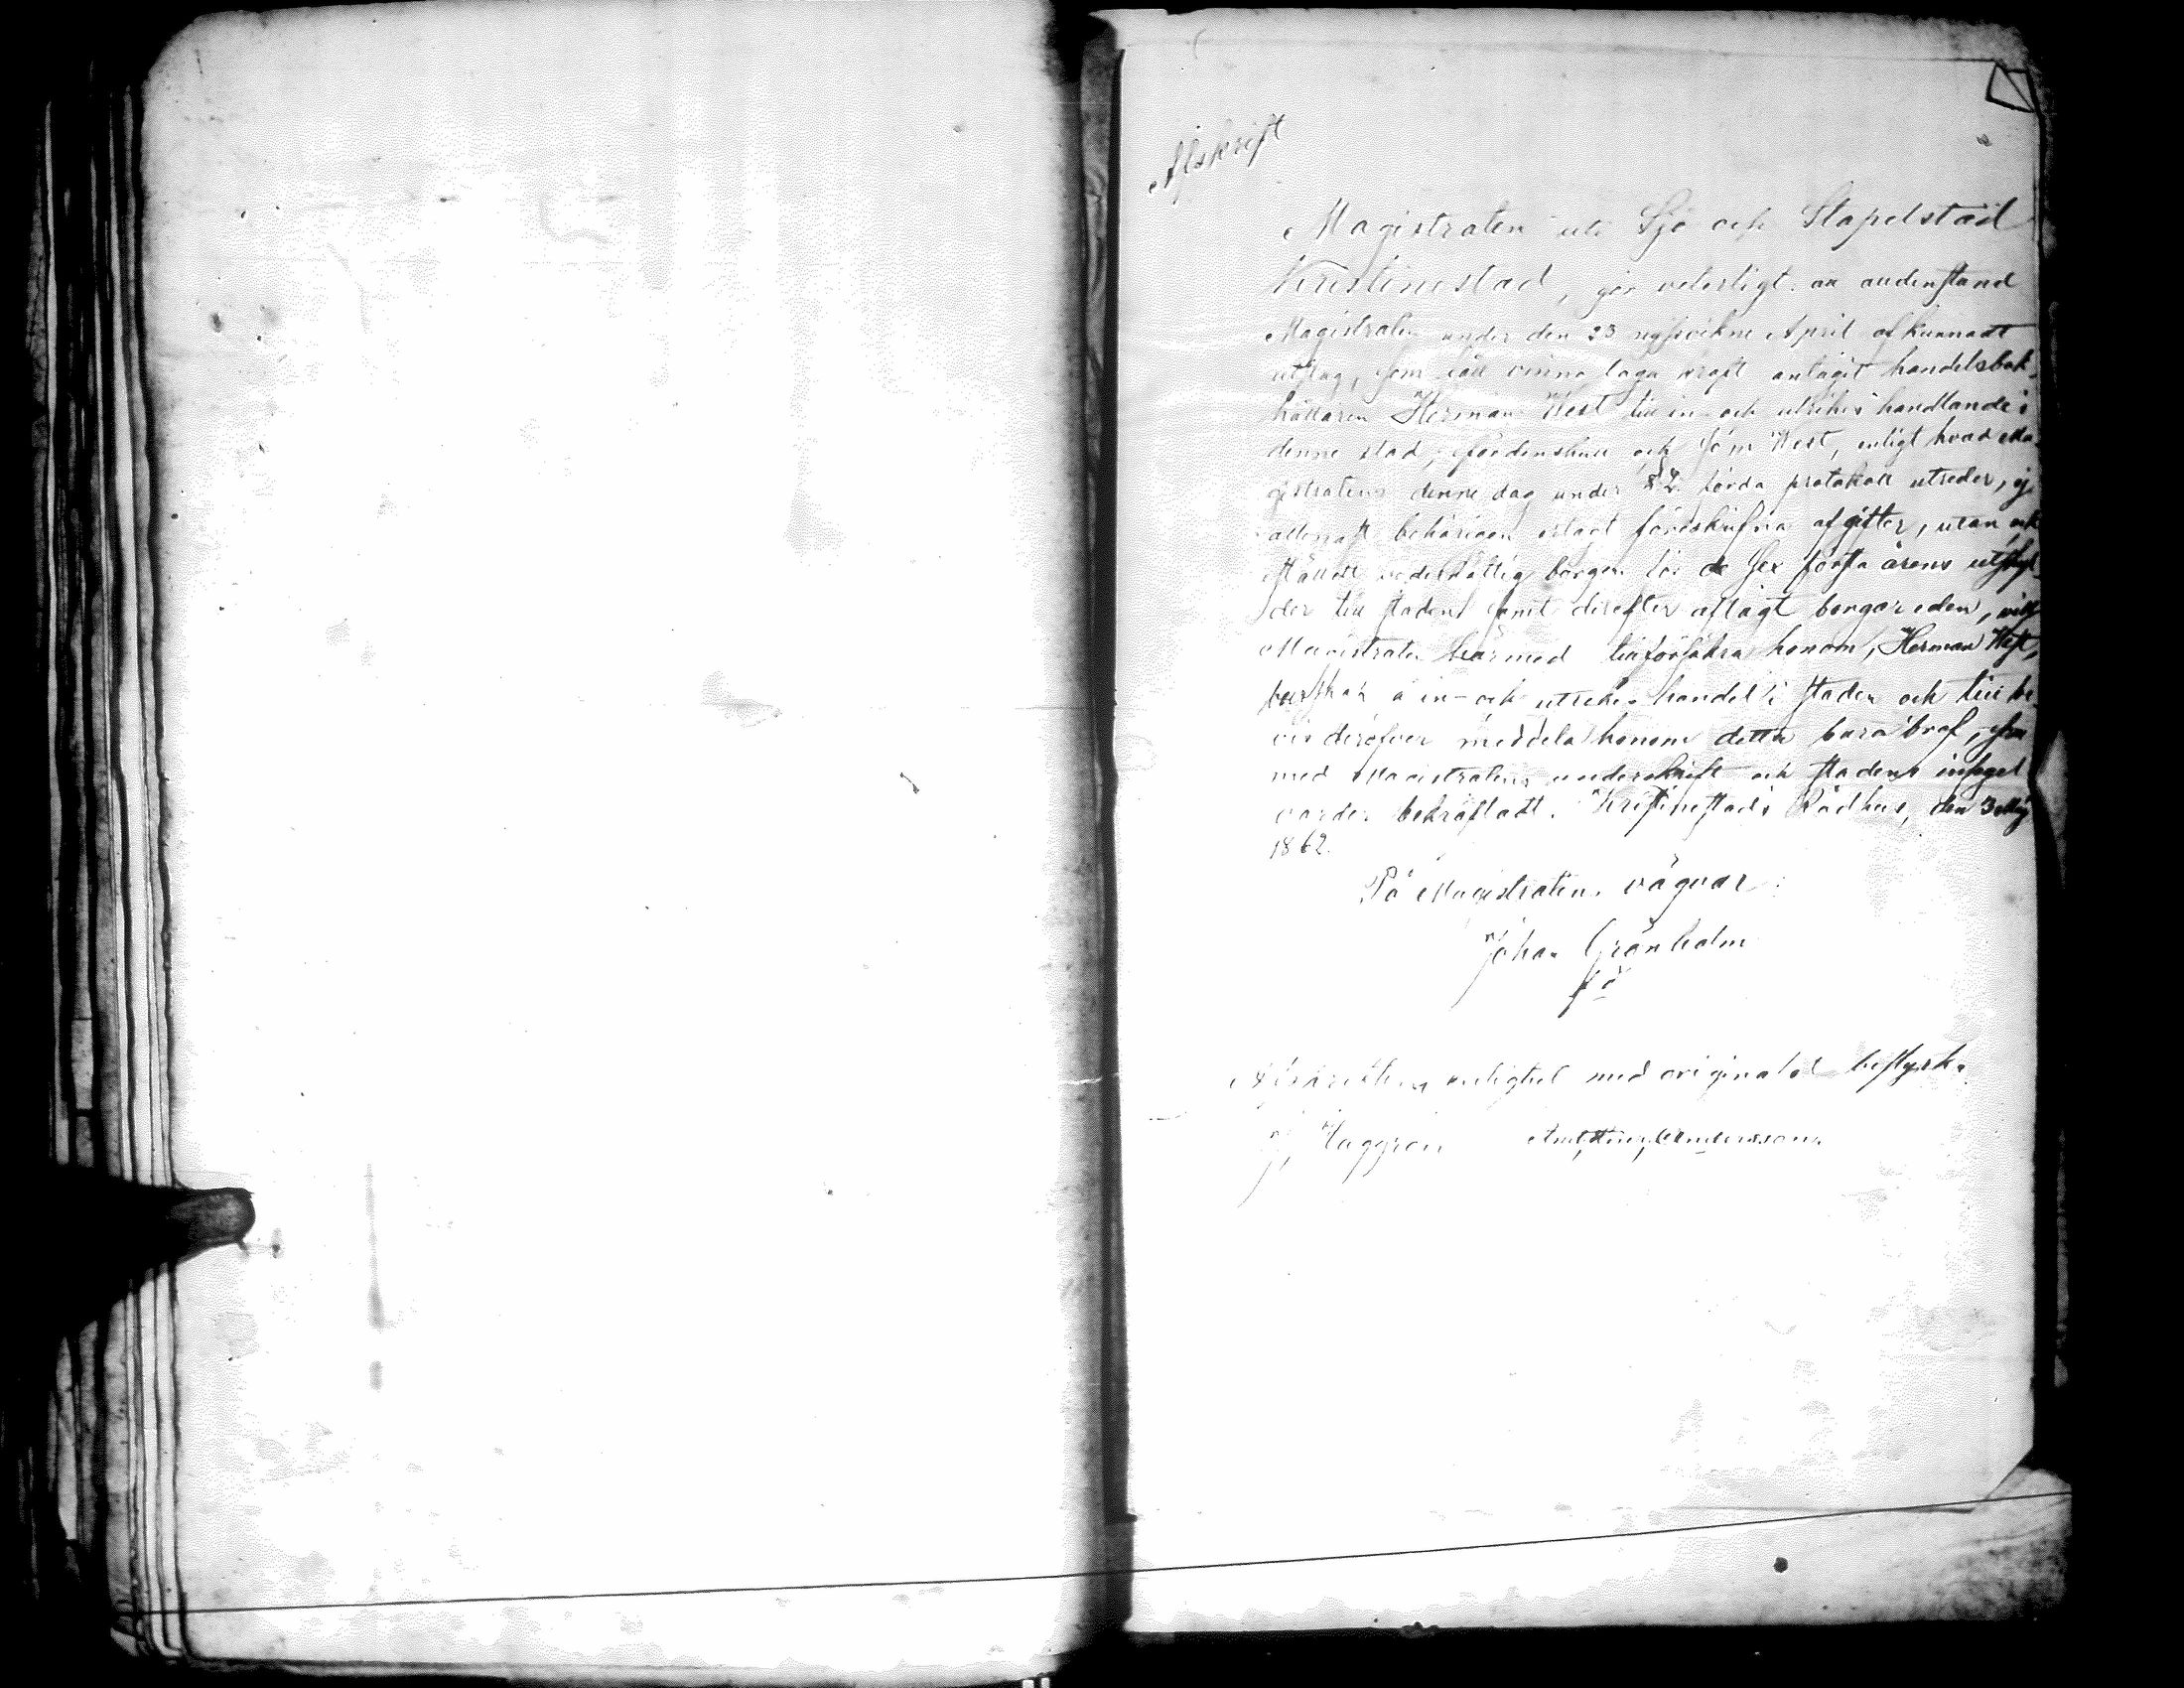 Afskrift
Magistraten uti Sjö och Stapelstad
Kristinestad, gör veterligt: att
Magistraten under den 23 sistvikne April afkunnadt
utslag, som låtit vinna laga kraft antagit handelsbok-
hållaren Herman West till in- och utrikes handlande i
denne stad, fördenskull och som West, enligt hvad Ma-
gistratens denne dag under § 2 förda protokoll utreder, ej
allenast behörigen erlagt föreskrifna afgifter, utan ock
ställt vederhäftig borgen för de sex första årens utskyl-
der till staden samt derefter aflagt borgareeden, vill
Magistraten härmed tillförsäkra honom, Herman West,
burskap å in- och utrikes handel i staden och till be-
vis deröfver meddela honom detta burabref, som
med Magistratens underskrift och stadens insegel
varder bekräftadt. Kristinestads Rådhus, den 3 Maj
1862.
På Magistratens vägnar:
Johan Grönholm
Afskriftens enlighet med originalet bestyrka
J. Häggron Andersson